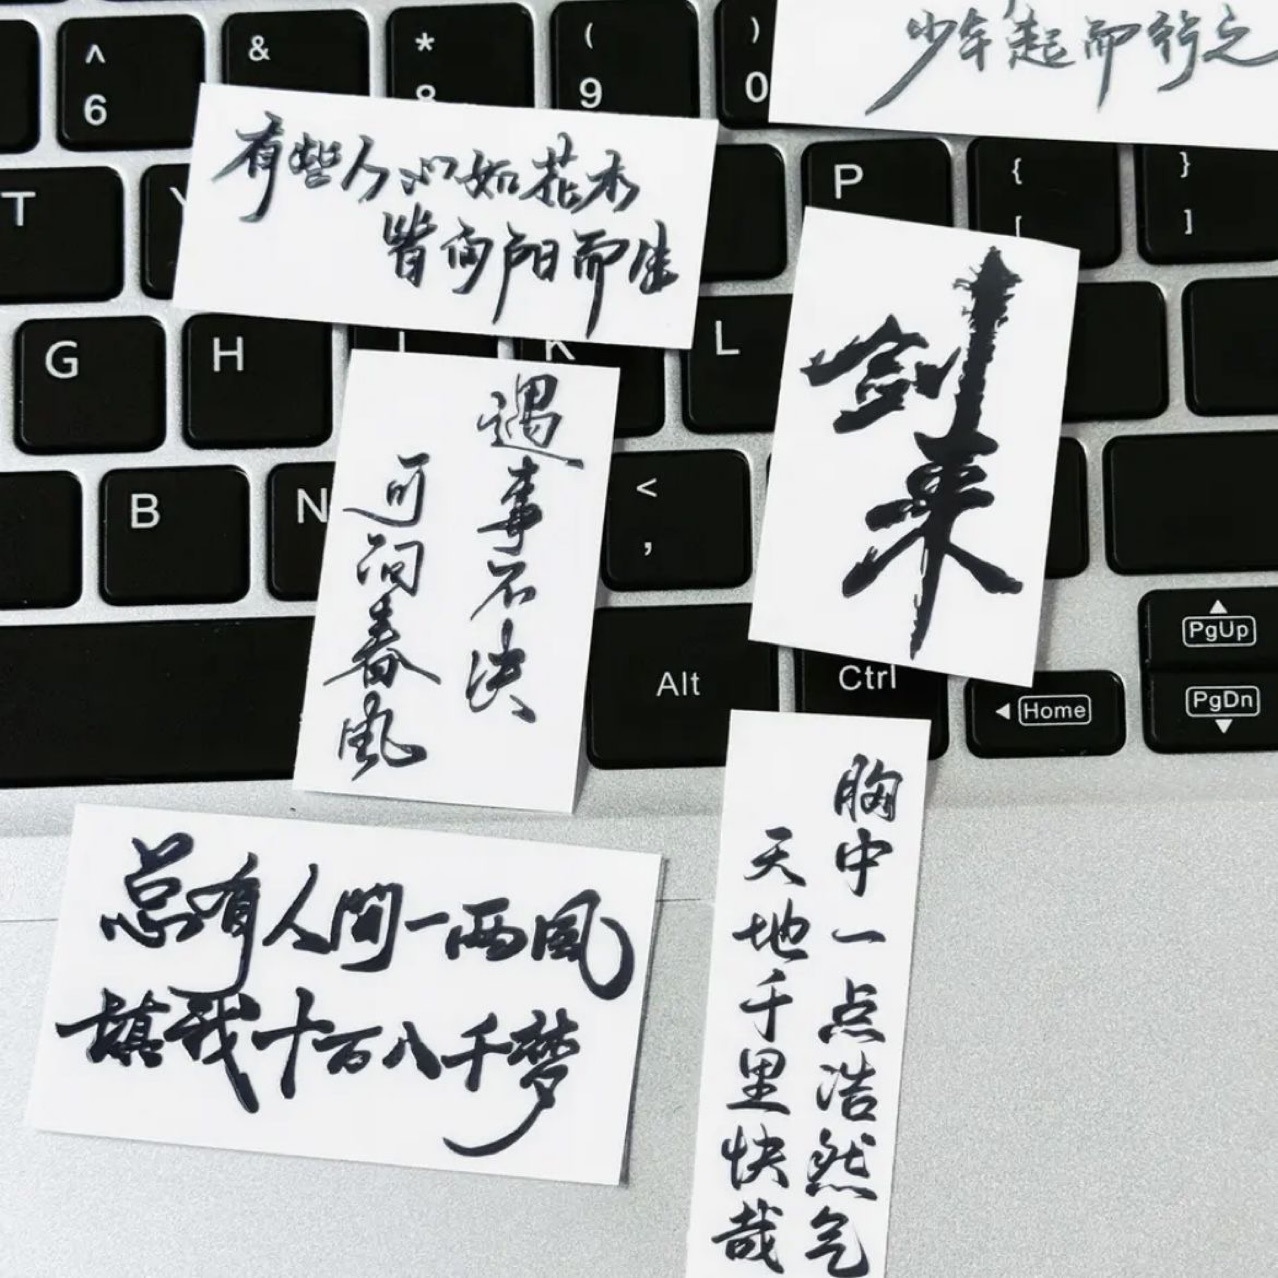 少年起而行之
^
6
&
*
8
(
9
)
0
有些人心如花木
皆向阳而生
T
Y
P
{
[
}
]
剑来
G
H
J
K
L
遇事不决
可问春风
B
N
<
,
Alt
Ctrl
PgUp
Home
PgDn
总有人间一两風
填我十百八千梦
胸中一点浩然气
天地千里快哉